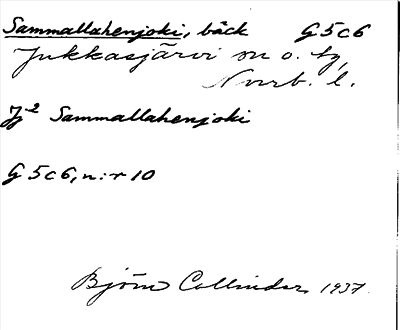 Sammallahenjoki, bäck G5c6
Jukkasjärvi sn o. tg,
Norrb. l.
J² Sammallahenjoki
G5c6, n:r 10
Björn Collinder 1937.